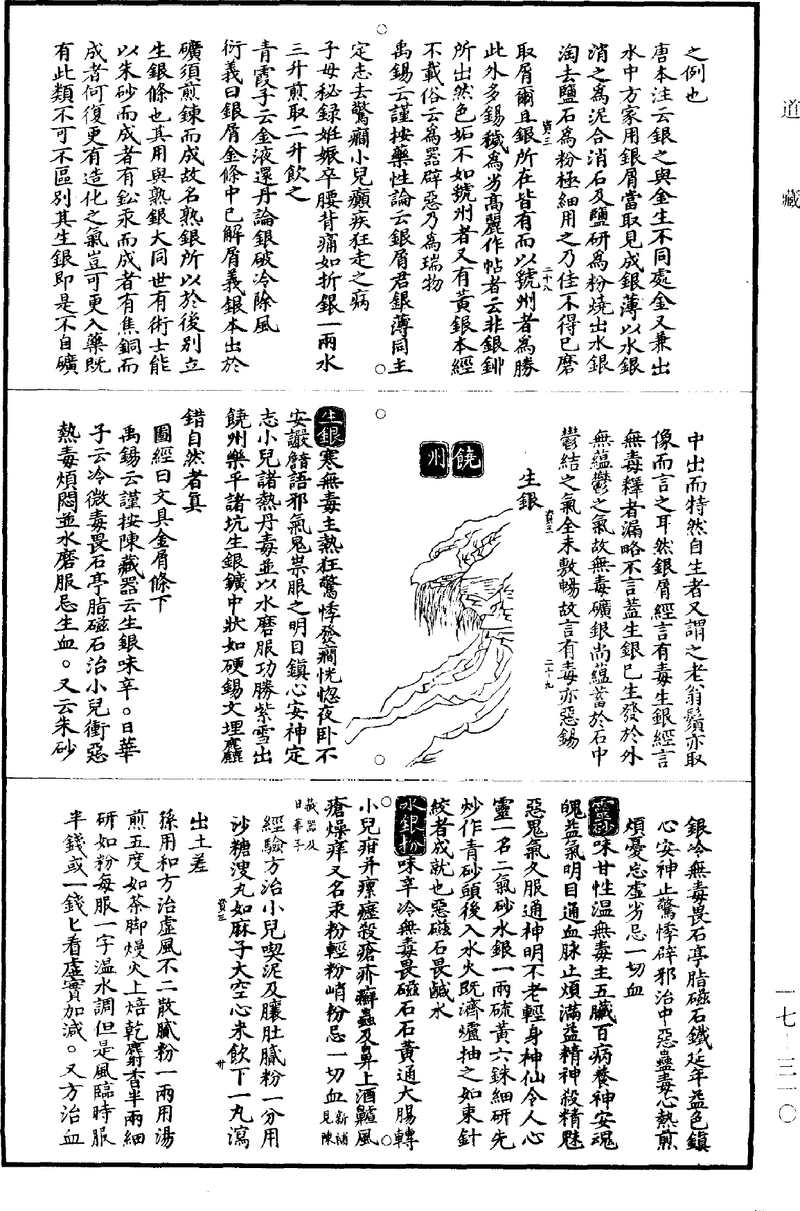 道藏
之例也
唐本注云銀之與金生不同處金又兼出
水中方家用銀屑當取見成銀薄以水銀
消之為泥合消石及鹽研為粉燒出水銀
淘去鹽石為粉極細用之乃佳不得已磨
取屑爾且銀所在皆有而以虢州者為勝
此外多錫穢為劣高麗作帖者云非銀鉚
所出然色妬不如虢州者又有黃銀本經
不載俗云為器辟惡乃為瑞物
禹錫云謹按藥性論云銀屑君銀薄同主
定志去驚癎小兒癲疾狂走之病
子母秘録姙娠卒腰背痛如折銀一兩水
三升煎取二升飲之
青霞子云金液還丹論銀破冷除風
衍義曰銀屑金條中已解屑義銀本出於
礦須煎鍊而成故名熟銀所以於後別立
生銀條也其用與熟銀大同世有術士能
以朱砂而成者有鈆汞而成者有焦銅而
成者何復更有造化之氣豈可更入藥既
有此類不可不區別其生銀即是不自礦
中出而特然自生者又謂之老翁鬚亦取
像而言之耳然銀屑經言有毒生銀經言
無毒釋者漏略不言蓋生銀已生發於外
無蘊鬱之氣故無毒礦銀尚蘊蓄於石中
鬱結之氣全未敷暢故言有毒亦惡錫
生銀
饒州
生銀寒無毒主熱狂驚悸發癎恍惚夜卧不
安讝語邪氣鬼祟服之明目鎮心安神定
志小兒諸熱丹毒並以水磨服功勝紫雪出
饒州樂平諸坑生銀鑛中狀如硬錫文理麤
錯自然者真
圖經曰文具金屑條下
禹錫云謹按陳藏器云生銀味辛。日華
子云冷微毒畏石亭脂磁石治小兒衝惡
熱毒煩悶並水磨服忌生血。又云朱砂
銀冷無毒畏石亭脂磁石鐵延年益色鎮
心安神止驚悸辟邪治中惡蠱毒心熱煎
煩憂忘虛劣忌一切血
靈砂味甘性溫無毒主五臟百病養神安魂
魄益氣明目通血脉止煩滿益精神殺精魅
惡鬼氣久服通神明不老輕身神仙令人心
靈一名二氣砂水銀一兩硫黃六銖細研先
炒作青砂頭後入水火既濟爐抽之如束針
紋者成就也惡磁石畏鹹水
水銀粉味辛冷無毒畏磁石石黃通大腸轉
小兒疳并瘰癧殺瘡疥癬蟲及鼻上酒齇風
瘡燥痒又名汞粉輕粉峭粉忌一切血新補見陳
藏器及日華子
經驗方治小兒喫泥及䑋肚膩粉一分用
沙糖溲丸如麻子大空心米飲下一丸瀉
出土差
孫用和方治虛風不二散膩粉一兩用湯
煎五度如茶脚熳火上焙乾麝香半兩細
研如粉每服一字溫水調但是風臨時服
半錢或一錢匕看虛實加減。又方治血
一七—三一〇